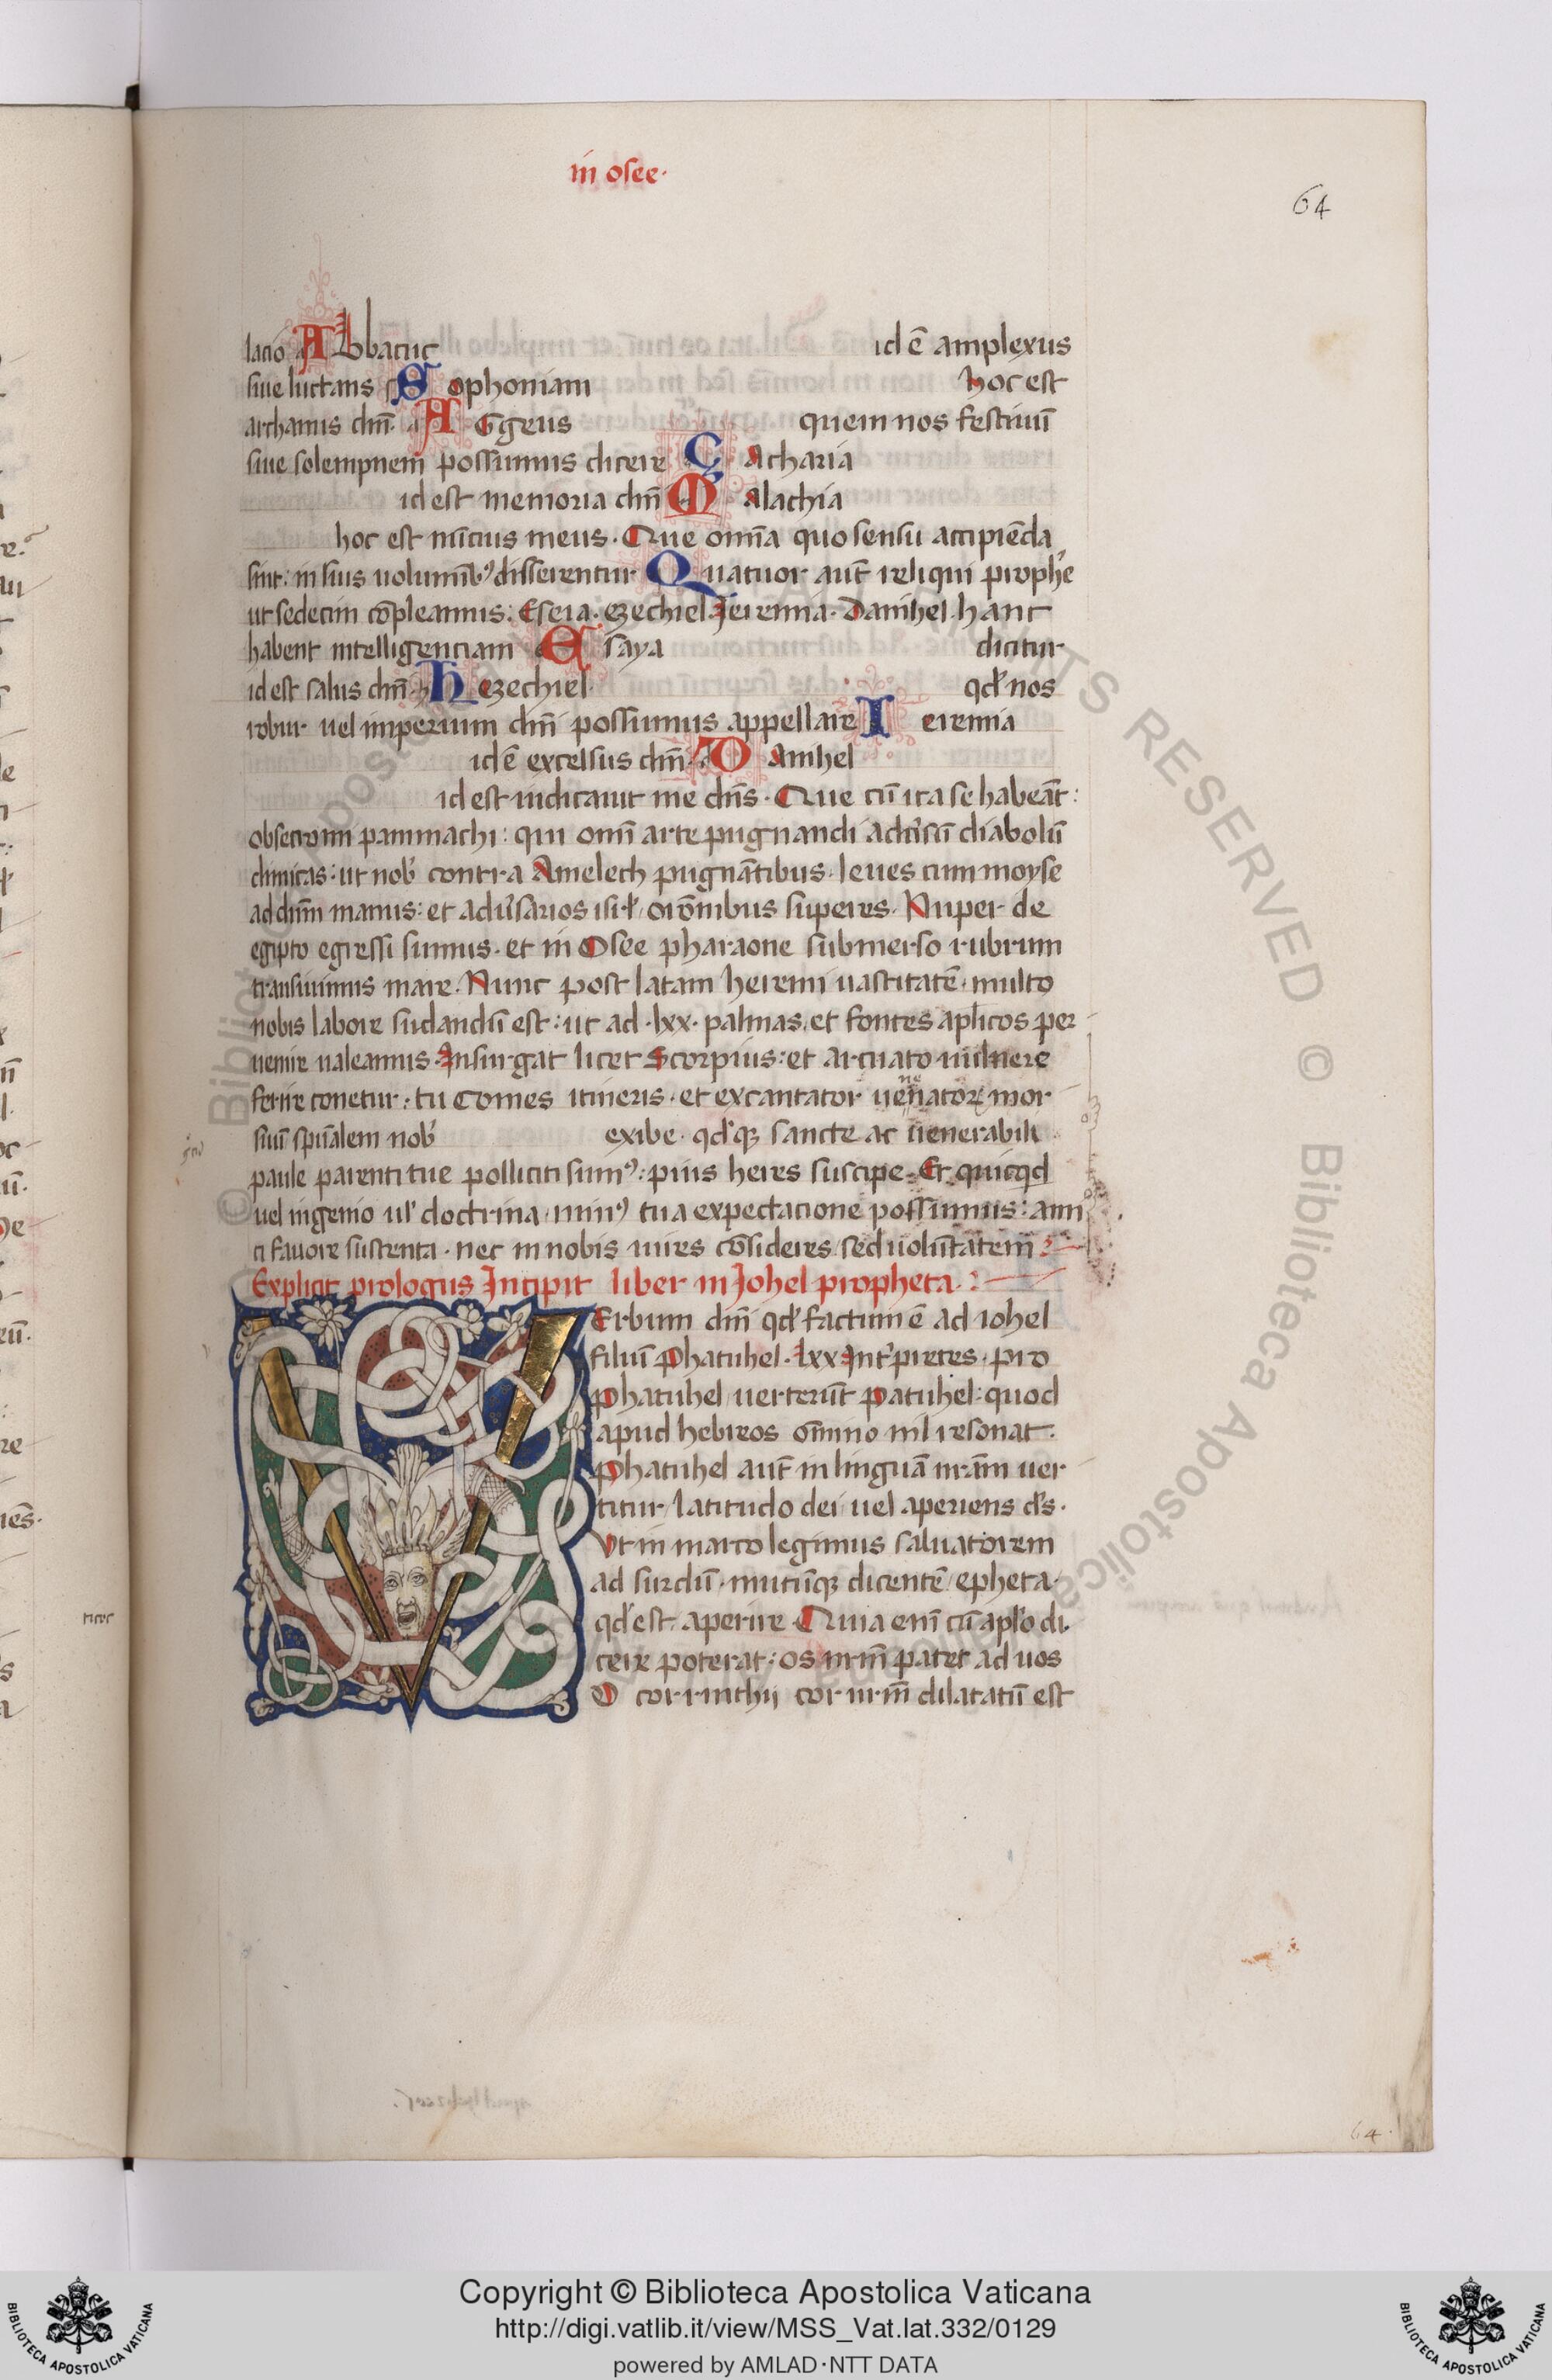 in osee·
64
lacio Abbacuc idē amplexus
siue luctans Sophoniam hoc est
archanus dn̄i· Aggeus quem nos festiuū
siue solempnem possumus dicere Zacharia
id est memoria dn̄i Malachia
hoc est nūcius meus· Que omīa quo sensu accipiēda
sint: in suis uolumīb⁹ disserentur Quatuor aut̄ reliqui prophe
ut sedecim cōpleamus: Eseia· ezechiel Jeremia· Danihel· hanc
habent intelligenciam Esaya dicitur
id est salus dn̄i· Hezechiel· qd' nos
robur uel imperium dn̄i possumus appellare Ieremia
idē excelsus dn̄i· Danihel
id est iudicauit me dn̄s· Que cū ita se habeāt:
obsecro mi pammachi: qui omī arte pugnandi adu'sū diabolū
dimicas: ut nob' contra Amelech pugnātibus· leues cum moyse
ad dn̄m manus: et adu'sarios isrl' orōnibus superes· Nuper de
egipto egressi sumus· et in Osee pharaone submerso rubrum
transiuimus mare· Nunc post latam heremi uastitatē· multo
nobis labore sudandū est: ut ad ·lxx· palmas· et fontes apl'icos per
uenire ualeamus· Insurgat licet Scorpius: et arcuato uulnere
ferire conetur: tu comes itineris· et excantator uenator mor
ne
suū spūalem nob' exibe· qd'q; sancte ac uenerabili
paule parenti tue polliciti sum⁹: pius heres suscipe· Et quicqd
uel ingenio ul' doctrina· min⁹ tua expectacione possumus: ami
ci fauore sustenta· nec in nobis uires cōsideres sed uolūtatem
Explicit prologus Incipit liber in Johel propheta·
Verbum dn̄i qd' factum ē ad iohel
filiū Phatuhel· lxx Int'pretes· pro
phatuhel uerterūt patuhel: quod
apud hebreos om̄ino nil resonat·
Phatuhel aut̄ in linguā nrām uer
titur latitudo dei uel aperiens d's·
Vt in marco legimus saluatorem
ad surdū· mutūq; dicentē epheta·
qd' est aperire· Quia enī cū apl'o di
cere poterat: os nrm̄ patet ad uos
O corinthij cor nrm̄ dilatatū est
64·
Copyright © Biblioteca Apostolica Vaticana
http://digi.vatlib.it/view/MSS_Vat.lat.332/0129
powered by AMLAD·NTT DATA
BIBLIOTECA APOSTOLICA VATICANA
BIBLIOTECA APOSTOLICA VATICANA